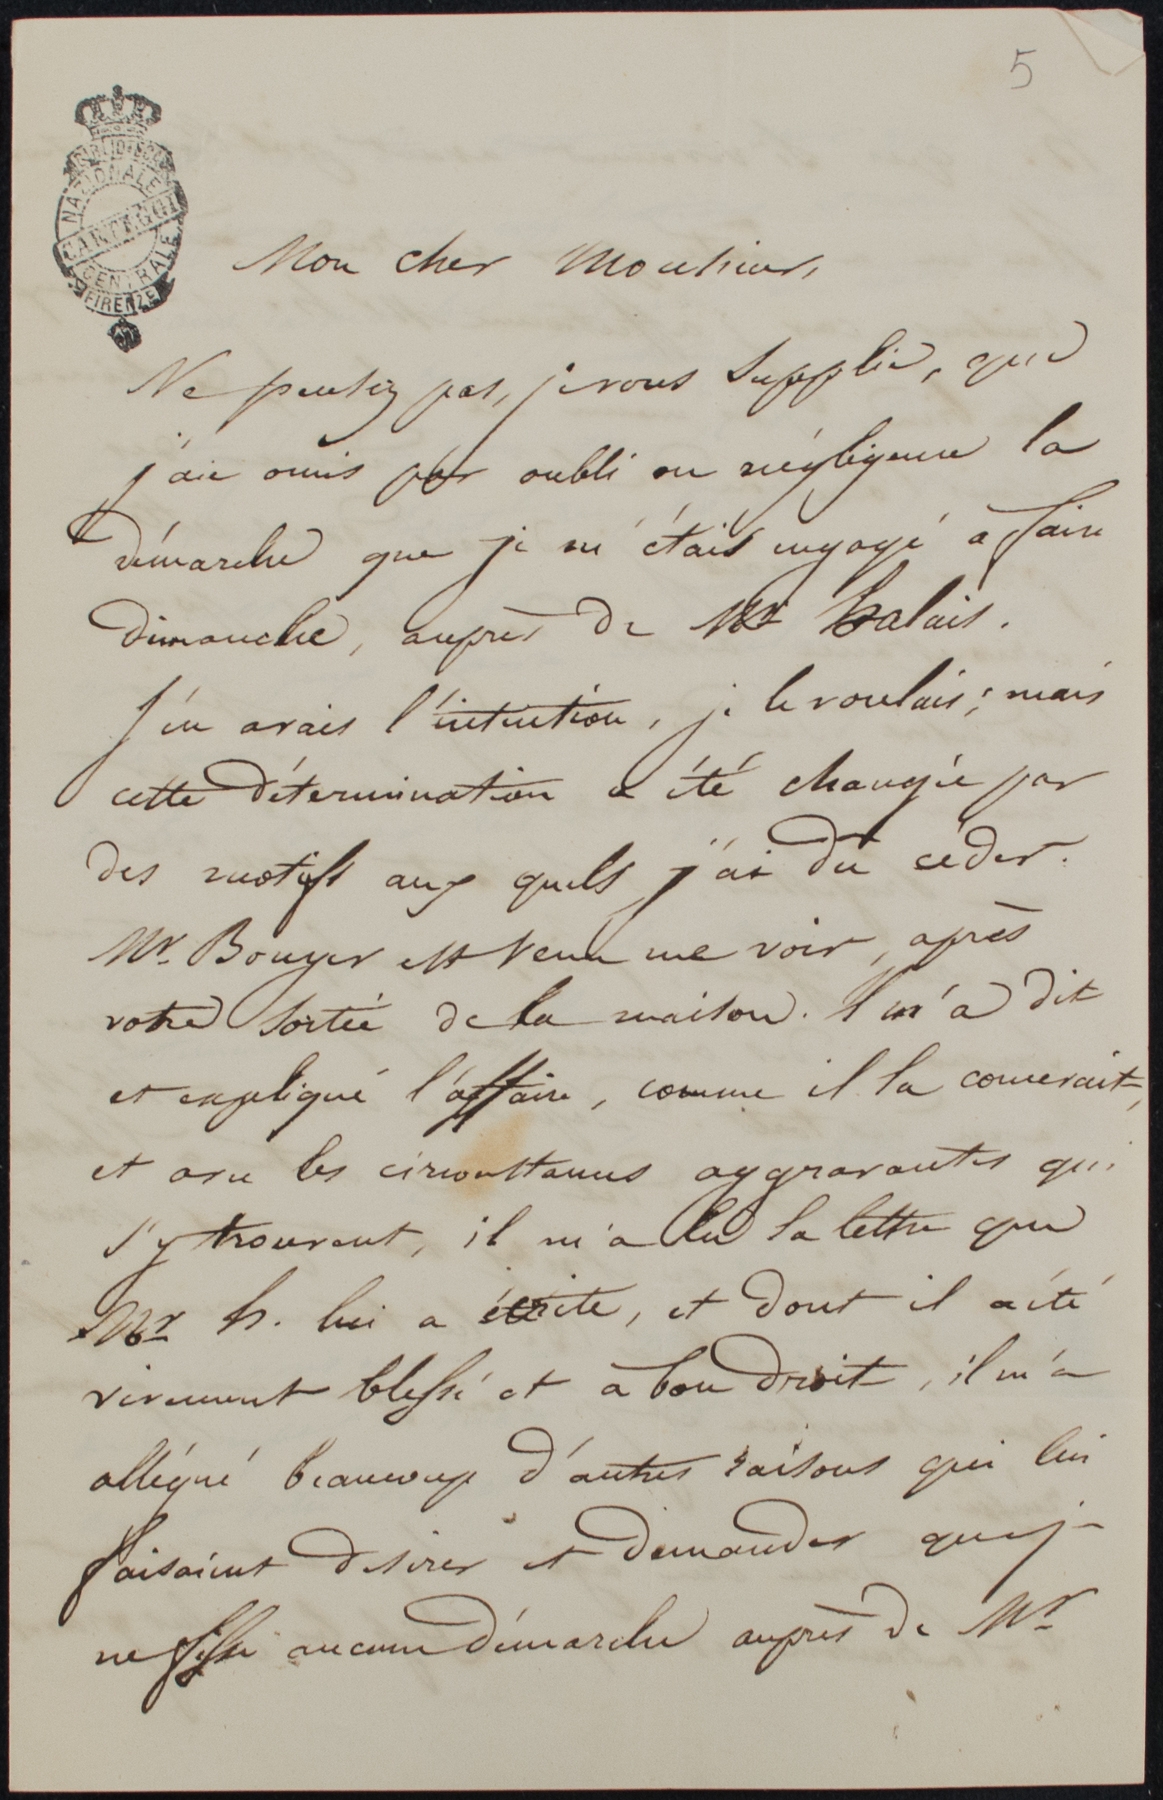 5
BIBLIOTECA
NAZIONALE
CARTEGGI
CENTRALE
FIRENZE
Mon cher Monsieur,
Ne pensez pas, je vous supplie, que
j'aie omis par oubli ou négligence la
démarche que je m'étais engagé à faire
dimanche, auprès de Mr halais.
J'en avais l'intention, je le voulais; mais
cette détermination a été changée par
des motifs aux quels j'ai dû céder.
Mr. Bouyer est venu me voir, après
votre sortie de la maison. Il m'a dit
et expliqué l'affaire, comme il la concevait,
et avec les circonstances aggravantes qui
s'y trouvent, il m'a lu la lettre que
Mr h. lui a écrite, et dont il a été
vivement blessé et à bon droit, il m'a
allégué beaucoup d'autres raisons qui lui
faisaient desirer et demander que je
ne fisse aucune démarche auprès de Mr